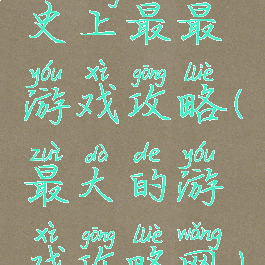 史上最最
yóu xì gōng lüè
游戏攻略(
zuì dà de yóu
最大的游
xì gōng lüè wǎng
戏攻略网)